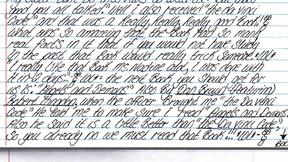 good you all talked. Well I also received "the da Vinci
Code" and that was a Really, Really, Really, good Book. :)
What was so amazing that the Book had so many
real facts in it that if you would not have study
in the past that Book would really trick Someone!
I really like that Book me anyhow also, I was done with
it in 2 days. the next Book you should get for
us is: "Angels and Demons" Also By Dan Brown
Robert Langdon, when the officer Brought me "the Da Vinci
Code" He told me to make sure I read "Angels and Demons"
Also he said it is a Little Better than "the Da Vinci Code."
So you already no we must read that Book!!!
Back